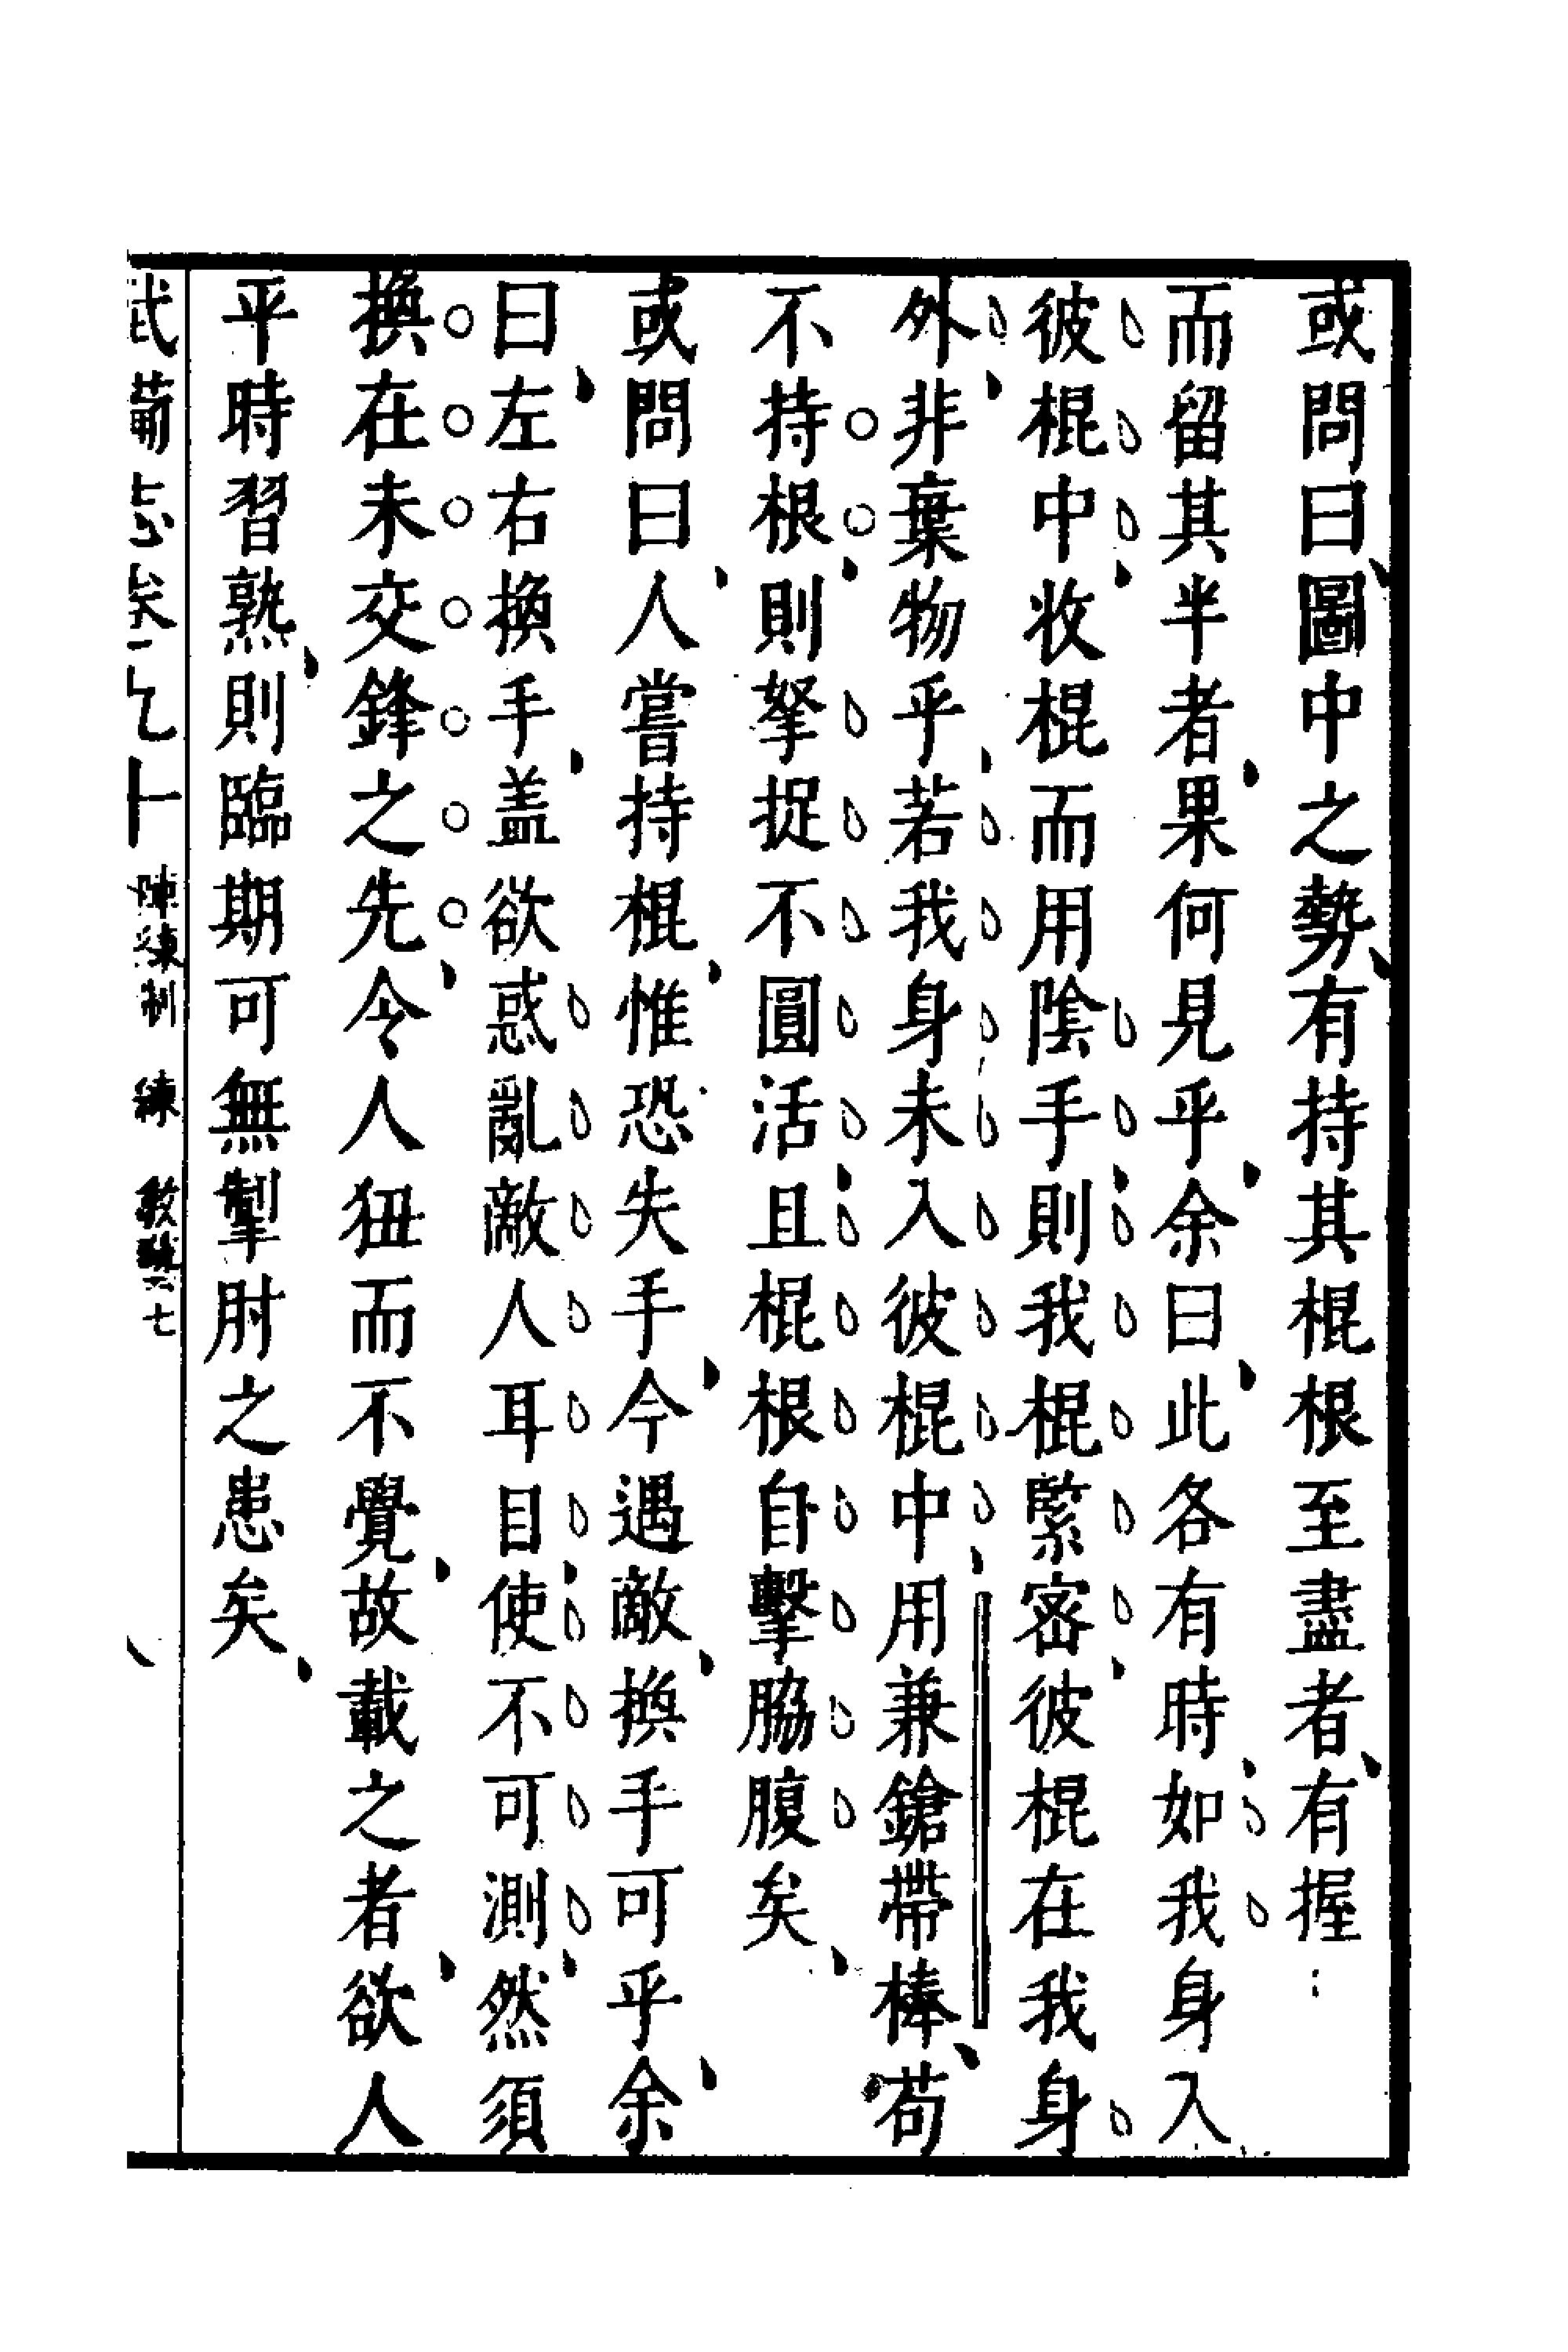 或問曰圖中之勢有持其棍根至盡者有握
而留其半者果何見乎余曰此各有時如我身入
彼棍中收棍而用陰手則我棍緊密彼棍在我身
外非棄物乎若我身未入彼棍中用兼鎗帶棒苟
不持根則拏捉不圓活且棍根自擊脇腹矣
或問曰人嘗持棍惟恐失手今遇敵換手可乎余
曰左右換手盖欲惑亂敵人耳目使不可測然須
換在未交鋒之先令人狃而不覺故載之者欲人
平時習熟則臨期可無掣肘之患矣
武備志卷九十 陣練制 練 教藝 七